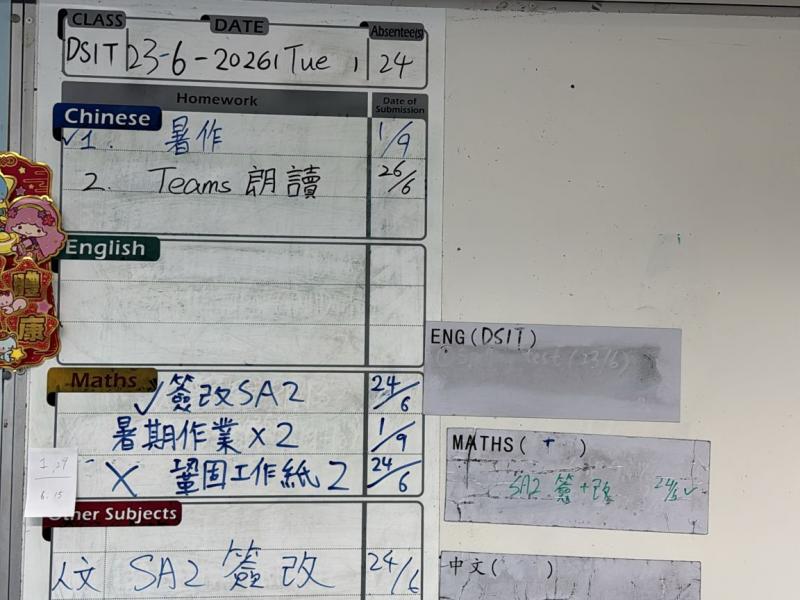 CLASS DATE Absentee(s)
DSIT 23-6-2026 Tue 24
Homework Date of Submission
Chinese
✓1. 暑作 1/9
2. Teams 朗讀 26/6
English
Maths
✓簽改SA2 24/6
暑期作業×2 1/9
× 鞏固工作紙2 24/6
Other Subjects
人文 SA2 簽改 24/6
ENG(DSIT)
test (23/6)
MATHS( + )
SA2 簽+改 ✓
中文( )
康